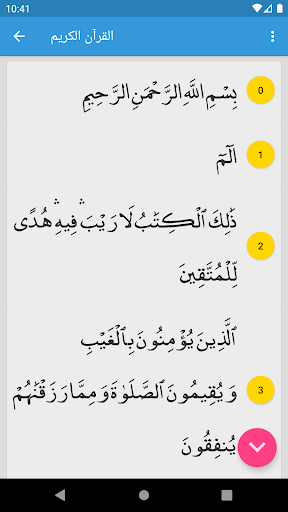 10:41
القرآن الكريم
بِسْمِ اللَّهِ الرَّحْمَٰنِ الرَّحِيمِ
0
الٓمٓ
1
ذَٰلِكَ ٱلْكِتَٰبُ لَا رَيْبَ ۛ فِيهِ ۛ هُدًى
2
لِّلْمُتَّقِينَ
ٱلَّذِينَ يُؤْمِنُونَ بِٱلْغَيْبِ
وَيُقِيمُونَ ٱلصَّلَوٰةَ وَمِمَّا رَزَقْنَٰهُمْ
3
يُنفِقُونَ